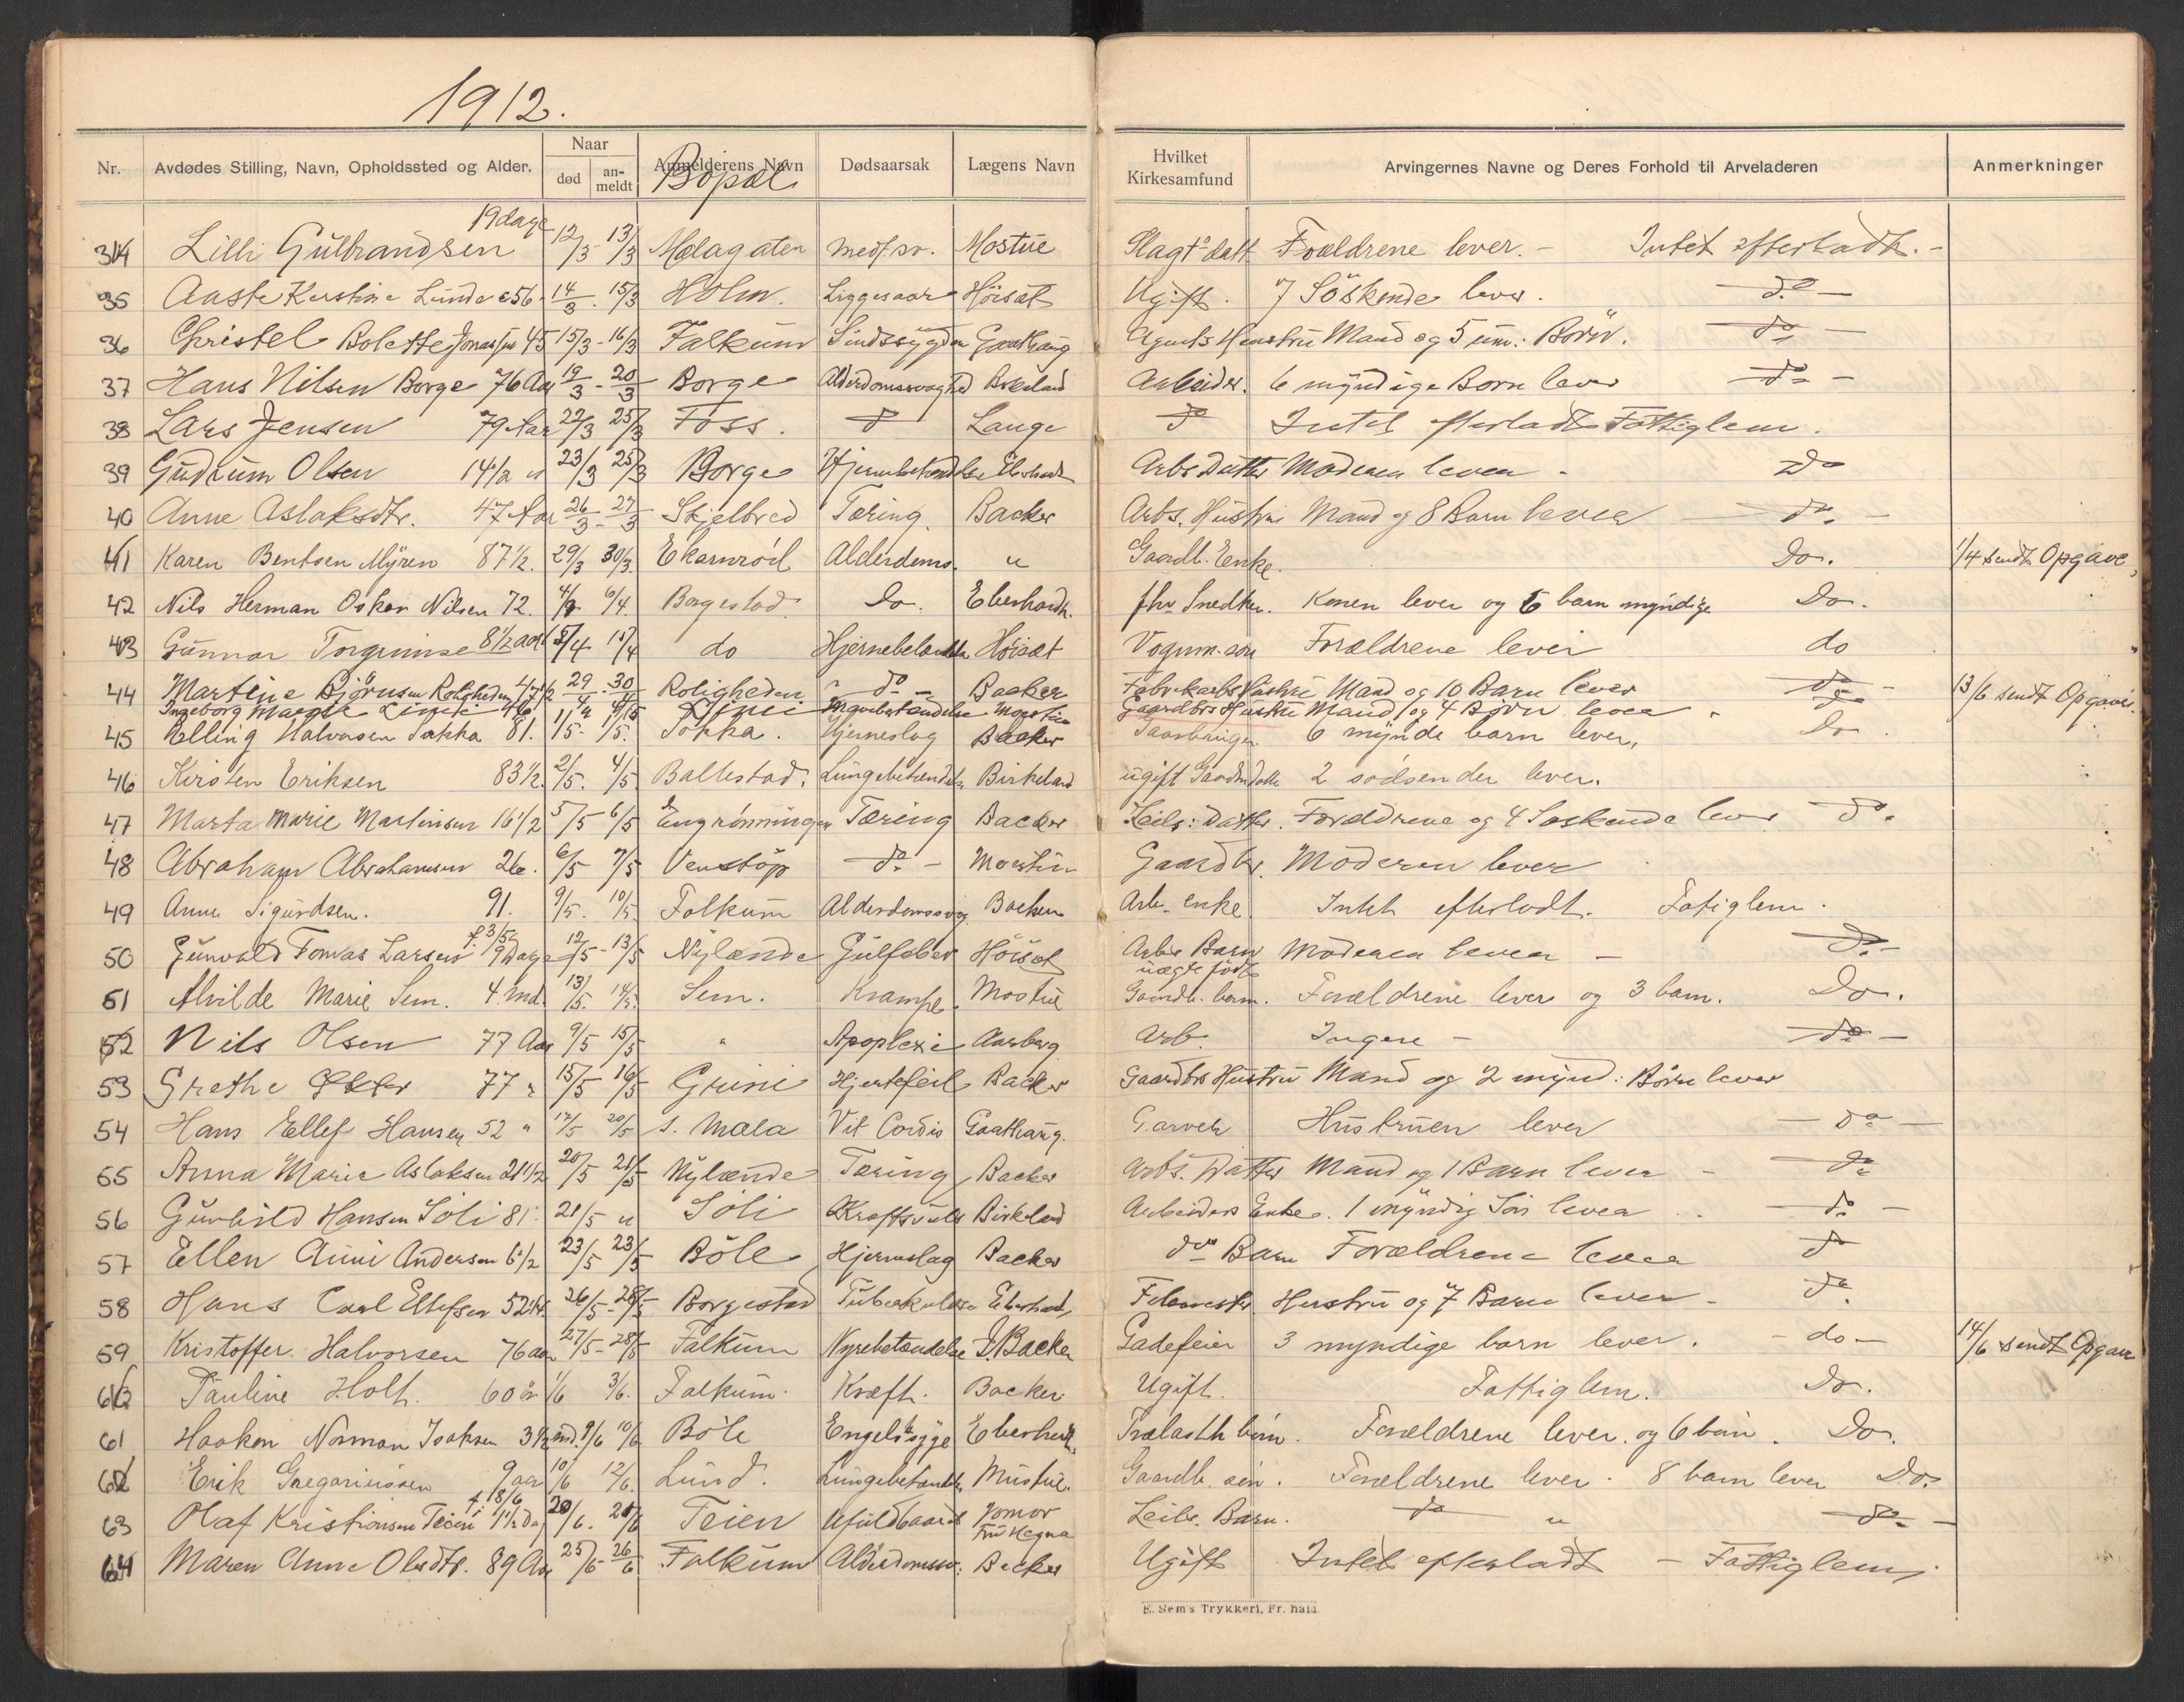 1912.
Nr. Avdødes Stilling, Navn, Opholdssted og Alder. Naar død an-meldt Anmelderens Navn Bopæl Dødsaarsak Lægens Navn Hvilket Kirkesamfund Arvingernes Navne og Deres Forhold til Arveladeren Anmerkninger
34 Lilli Gulbrandsen 19 dage 12/3 - 13/3 Mælagaten medf. sv. Mostue Slagt. datt. Forældrene lever. - Intet efterladt. -
35 Aaste Kerstine Lunde 56 14/3 - 15/3 Holm. Liggesaar Höisæt Ugift. 7 Söskende lever. do -
36 Christel Bolette 45 15/3 - 16/3 Falkum Sindssygdom Gaathaug Agents Hustru Mand og 5 um: Börn. do -
37 Hans Nilsen Borge 76 Aar 19/3 - 20/3 Borge Alderdomssvaghed Birkeland Arbeider. 6 myndige Born lever do -
38 Lars Jensen 79 Aar 22/3 25/3 Foss. do Lange do Intet efterladt Fattiglem.
39 Gudrum Olsen 14 1/2 " 23/3 25/3 Borge Hjernebetændelse Eberhardt Arbs Datter Moderen lever - do
40 Anne Aslaksdtr. 47 Aar 26/3 - 27/3 Skjelbred Tæring. Backer Arbs. Hustru Mand og 8 Barn lever - do -
41 Karen Bentsen Myren 87 1/2. 29/3 30/3. Ekornröd Alderdoms. " Gaardb. Enke. Do. 1/4 sendt Opgave,
42 Nils Herman Oskar Nilsen 72. 4/4 6/4. Borgestad Do. Eberhardt. fhv Snedker. Konen lever og 6 barn myndige Do.
43 Gunnar Torgrimse 8 1/2 aar 15/4 do Hjernebetændelse Höisæt Vognm. sön Forældrene lever do
44 Martine Björnsen Roligheden 47 1/2 29/4 30/4 Roligheden do - Backer Fabrikarbs Hustru Mand og 10 Barn lever do - 13/6 sendt Opgave.
Ingeborg Marie Grini Grini Mostue Gaardbrs Hustru Mand og 4 Börn lever - do
45 Elling Halvorsen Sokka 81. 1/5 - 1/5. Sokka. Hjerneslag Backer 6 mynde barn lever, Do
46 Kirsten Eriksen 83 1/2. 2/5. 4/5 Ballestad. Lungebetændelse Birkeland ugift Gaardm datt 2 södsender lever.
47 Marta Marie Martinsen 16 1/2 5/5 6/5 Engrönningen Tæring Backer Leils: Datter. Forældrene og 4 Söskende lever do.
48 Abraham Abrahamsen 26. 6/5 7/5 Venstöp do - Moestue Gaardbr. Moderen lever
49 Anne Sigurdsen. 91. 9/5. 10/5. Folkum Alderdomssvag Backer Arb. enke. Intet efterladt. Fatiglem.
50 Gunvald Tomas Larsen f. 3/5 9 Dage 12/5 - 13/5 Nylænde Gulfeber Höisæt Arbs Barn uægte födt Moderen lever - do -
51 Alvilde Marie Sem. 4. md. 13/5. 14/5. Sem. Krampe. Mostue Gaardb. barn. Forældrene lever og 3 barn. Do.
52 Nils Olsen 77 Aar 9/5 15/5 " Apoplexie Aarberg Arb. Ingen - do -
53 Grethe 77 " 15/5 16/5 Grini Hjertefeil Backer Gaardbrs Hustru Mand og 2 mynd: Börn lever
54 Hans Ellef Hansen 52 " 17/5 20/5 S. Mæla Vit Cordis Gaathaug. Garver Hustruen lever - do -
55 Anna Marie Aslaksen 21 1/2 20/5 21/5 Nylænde Tæring Backer Arbs. Datter Mand og 1 Barn lever - do
56 Gunhild Hansen Söli 81. 21/5 " Söli Birkeland Arbeiders Enke. 1 myndig Sön lever do -
57 Ellen Anni Andersen 6 1/2 23/5 23/5 Böle Hjerneslag Backer do Barn Forældrene lever do
58 Hans Carl Ellefsen 52 Aar. 26/5 - 28/5 Borgestad Tuberkulose Eberhardt Hustru og 7 Barn lever - do.
59 Kristoffer Halvorsen 76 aar 27/5 - 28/5 Falkum Nyrebetændelse J. Backer Gadefeier 3 myndige barn lever. - do - 14/6 sendt Opgave
60 Pauline Holt. 60 år 1/6 3/6. Falkum. Kræft. Backer Ugift. Fattiglem. Do.
61 Haakon Norman Isaksen 3 1/2 md. 9/6 10/6 Böle Engelsksyge Eberhardt. Trælasth. barn. Forældrene lever. og 6 barn. Do.
62 Erik Gregoriussen 9 aar 10/6 12/6. Lund. Lungebetændelse Mustue. Gaardb. sön. Forældrene lever. 8 barn lever Do.
63 Olaf Kristiansen Teien f. 18/6 1 1/2 Dag 20/6. 20/6 Teien Ufuldbaaret Jomor Fru Hegna Leils. Barn. do " do -
64 Maren Anne Olsdtr. 89 Aar 25/6 - 26/6 Falkum Alderdomssv: Backer Ugift Intet efterladt - Fattiglem,
E. Sem's Trykkeri, Fr. hald.